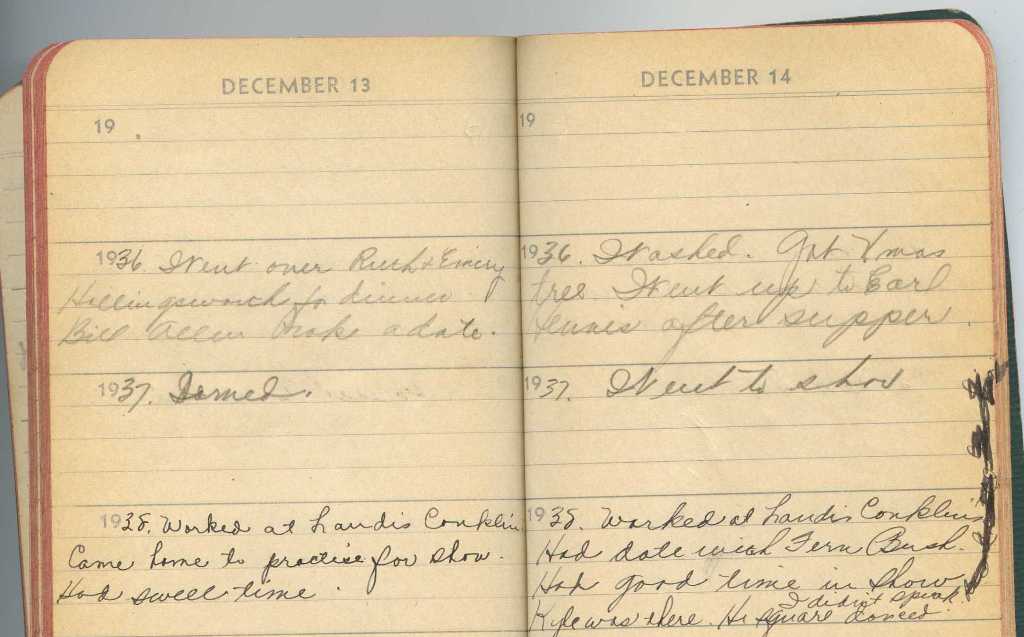 DECEMBER 13
19
1936. Went over Ruth & Emery
Hillingsworth for dinner
Bill Allen broke a date.
1937. Ironed.
1938. Worked at Landis Conklin
Came home to practise for show.
Had swell time.
DECEMBER 14
19
1936. Washed. Got Xmas
tree. Went up to Earl
after supper.
1937. Went to show
1938. Worked at Landis Conklin's
Had date with Fern Bush.
Had good time in show
I didn't speak.
Kyle was there. He square danced